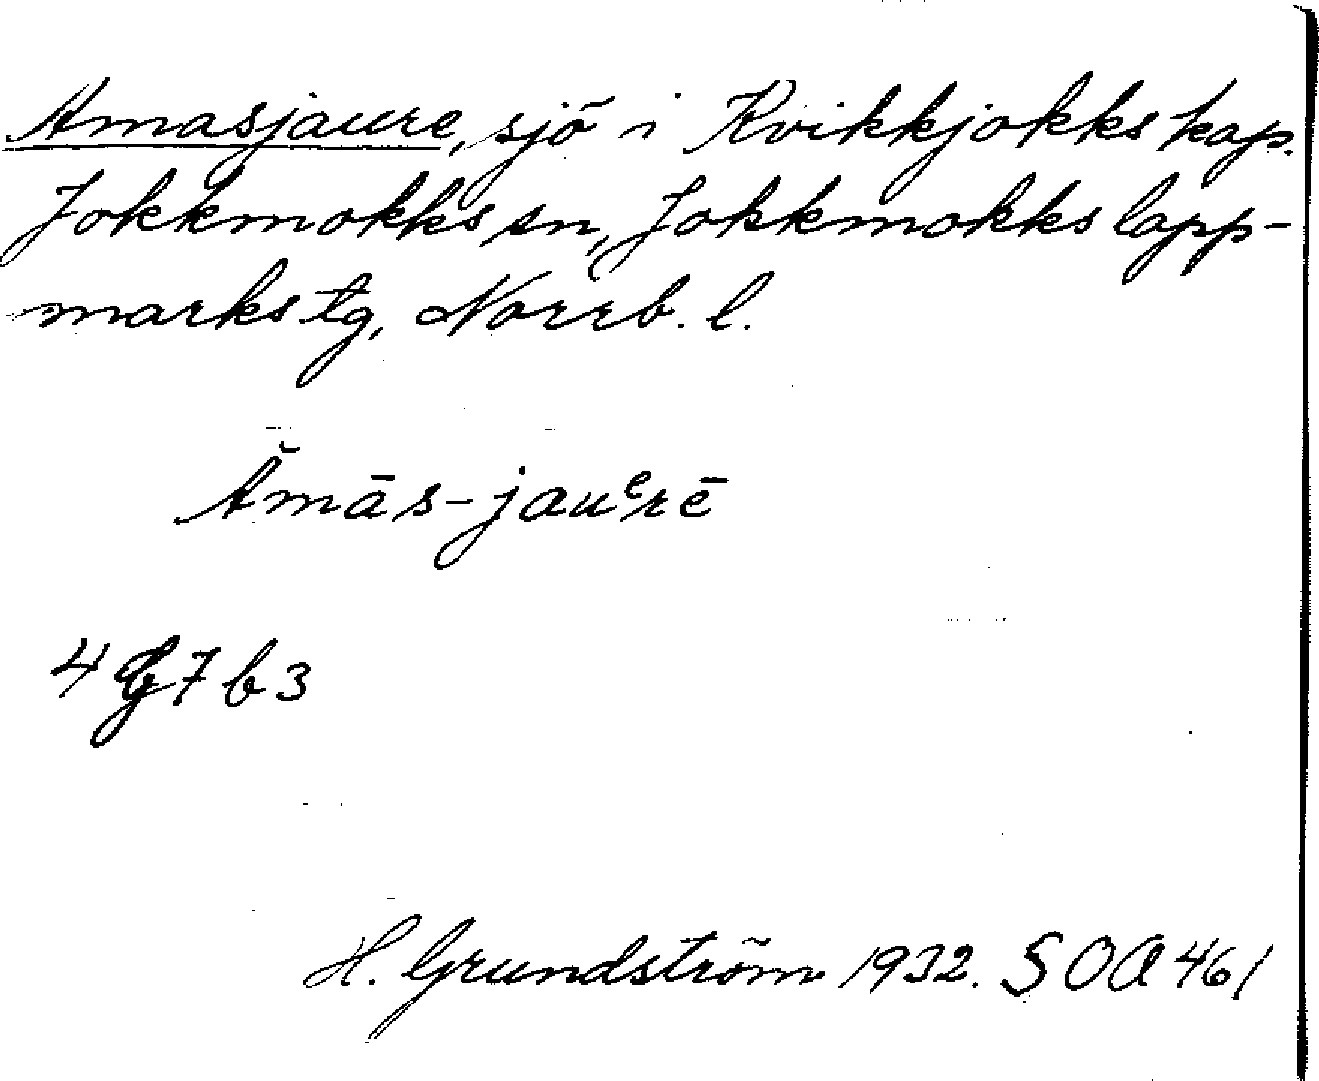 Amasjaure, sjö i Kvikkjokks kap.
Jokkmokks sn, Jokkmokks lapp-
marks tg, Norrb. l.
Ămās-jauᵉrē
4 G 7 b 3
H. Grundström 1932. S O A 461